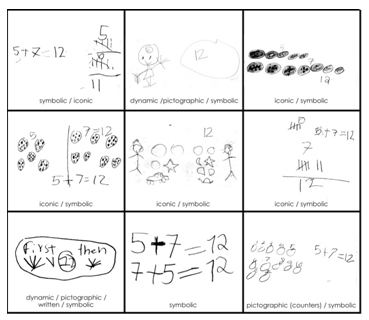 5+7=12
5
11
symbolic / iconic
12
dynamic /pictographic / symbolic
7
12
iconic / symbolic
5 7=12
5+7=12
iconic / symbolic
12
iconic / symbolic
5+7=12
7
12
iconic / symbolic
first then
12
dynamic / pictographic /
written / symbolic
5+7=12
7+5=12
symbolic
5+7=12
pictographic (counters) / symbolic